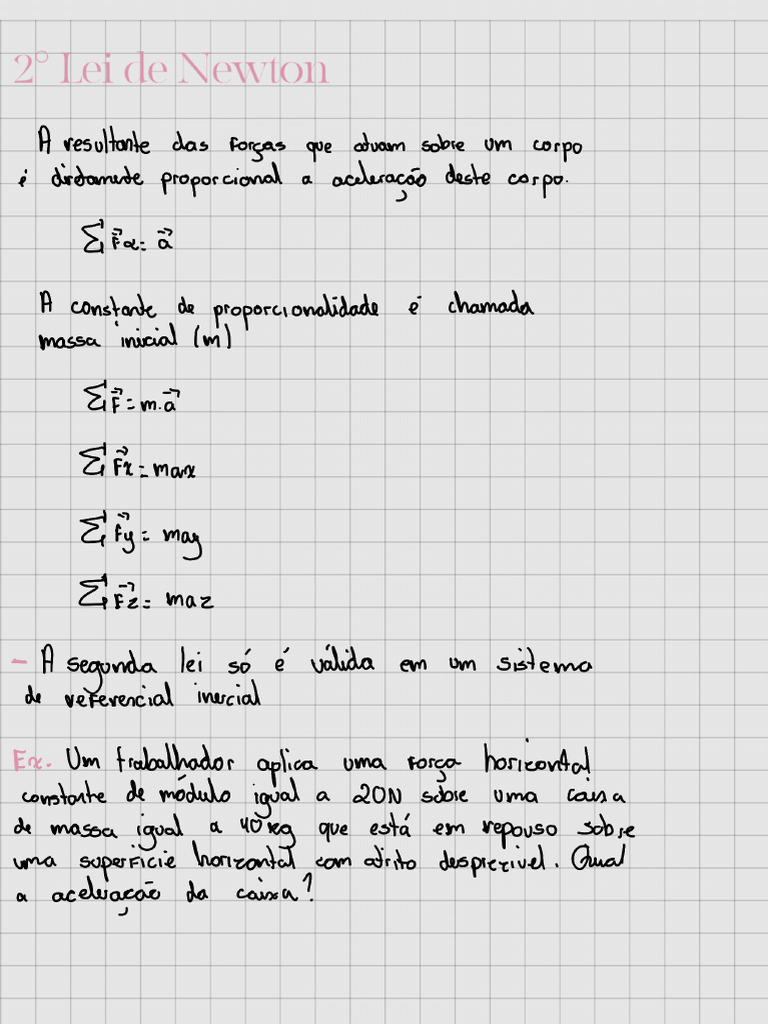 2° Lei de Newton
A resultante das forças que atuam sobre um corpo
é diretamente proporcional a aceleração deste corpo.
∑F⃗ α = a⃗
A constante de proporcionalidade é chamada
massa inicial (m)
∑F⃗ = m.a⃗
∑F⃗x = max
∑F⃗y = may
∑F⃗z = maz
- A segunda lei só é válida em um sistema
de referencial inercial
Ex. Um trabalhador aplica uma força horizontal
constante de módulo igual a 20N sobre uma caixa
de massa igual a 40kg que está em repouso sobre
uma superfície horizontal com atrito desprezivel. Qual
a aceleração da caixa?